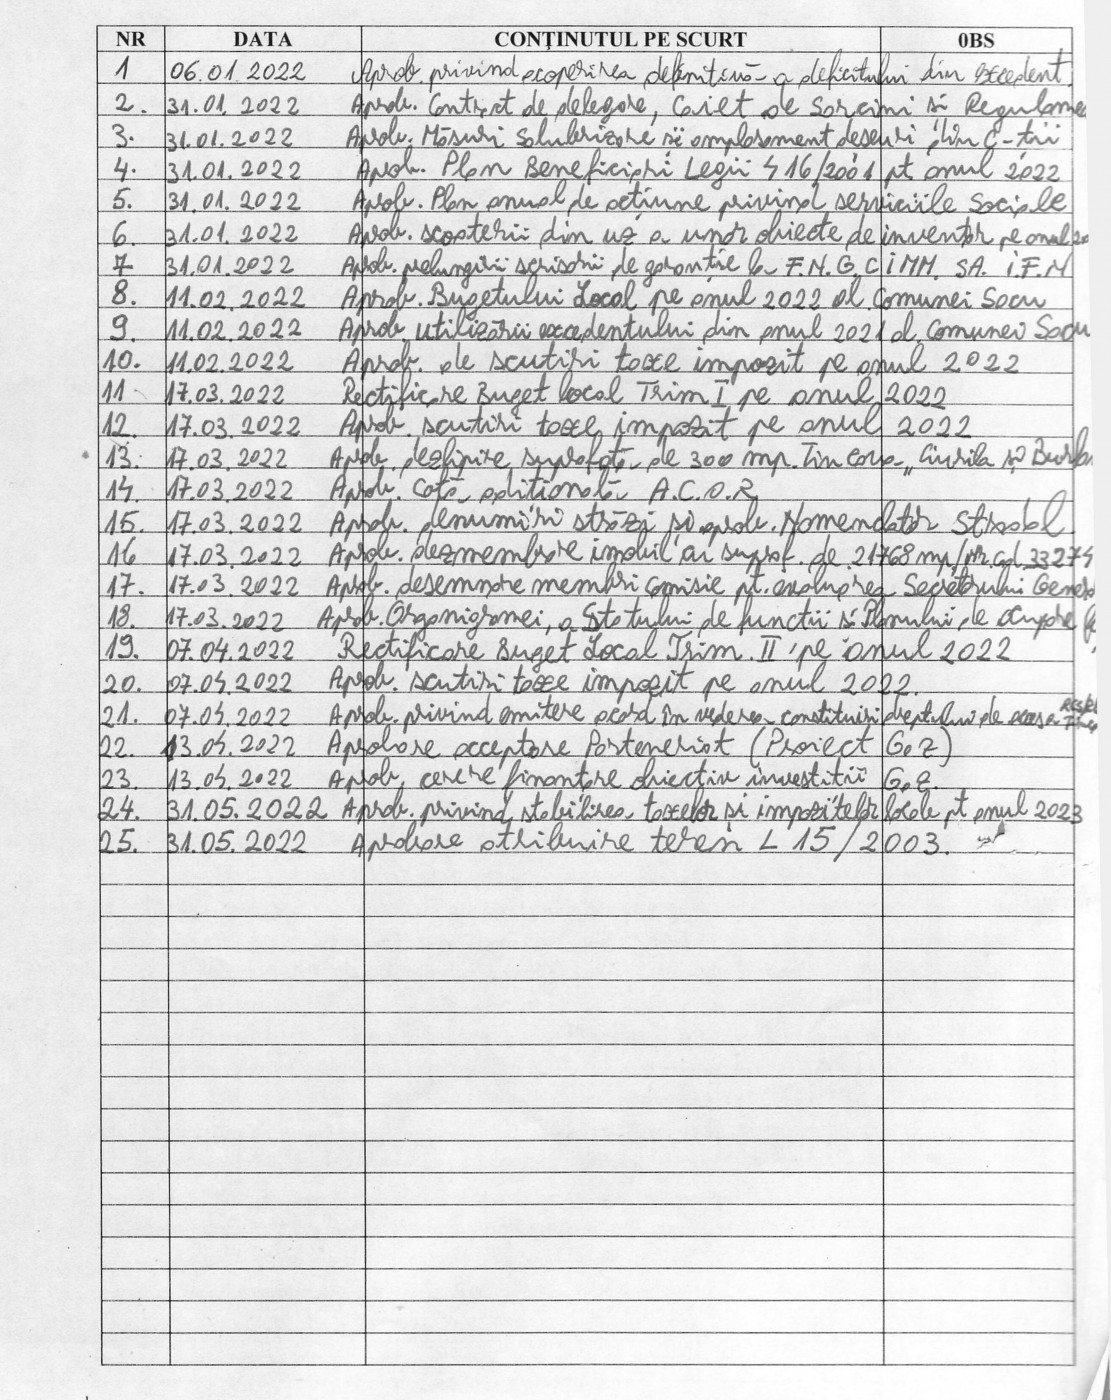 NR DATA CONȚINUTUL PE SCURT 0BS
1 06.01.2022 Aprob. privind acoperirea definitivă a deficitului din excedent
2. 31.01.2022 Aprob. Contract de delegare, Caiet de Sarcini si Regulame
3. 31.01.2022 Aprob. Măsuri Salubrizare si amplasament deseuri din C-tii
4. 31.01.2022 Aprob. Plan Beneficiari Legii 416/2001 pt anul 2022
5. 31.01.2022 Aprob. Plan anual de actiune privind serviciile Sociale
6. 31.01.2022 Aprob. scoaterii din uz a unor obiecte de inventar pe anul 20
7 31.01.2022 Aprob. prelungirii scrisorii de garantie la F.N.G.CIMM. SA. I.F.N
8. 11.02.2022 Aprob. Bugetului Local pe anul 2022 al Comunei Sacu
9. 11.02.2022 Aprob. utilizării excedentului din anul 2021 al Comunei Sacu
10. 11.02.2022 Aprob. de scutiri taxe impozit pe anul 2022
11 17.03.2022 Rectificare Buget local Trim I pe anul 2022
12. 17.03.2022 Aprob. scutiri taxe impozit pe anul 2022
13. 17.03.2022 Aprob. dezlipire suprafață de 300 mp. Tincova „Ciurila și
14. 17.03.2022 Aprob. Cotă aditională A.C.O.R.
15. 17.03.2022 Aprob. denumiri străzi și aprob. Nomenclator Stradal
16 17.03.2022 Aprob. dezmembrare imobil cu supraf. de 21768 mp/Nr. cad 33274
17. 17.03.2022 Aprob. desemnare membri comisie pt. evaluarea Secretarului General
18. 17.03.2022 Aprob. Organigramei, a Statului de functii si Planului de ocupare
19. 07.04.2022 Rectificare Buget Local Trim. II pe anul 2022
20. 07.04.2022 Aprob. scutiri taxe impozit pe anul 2022.
21. 07.04.2022 Aprob. privind emitere acord în vederea constituiri dreptului de
22. 13.04.2022 Aprobare acceptare Parteneriat (Proiect Gaz)
23. 13.04.2022 Aprob. cerere finantare obiectiv investitii Gaz
24. 31.05.2022 Aprob. privind stabilirea taxelor și impozitelor locale pt anul 2023
25. 31.05.2022 Aprobare atribuire teren L 15/2003.